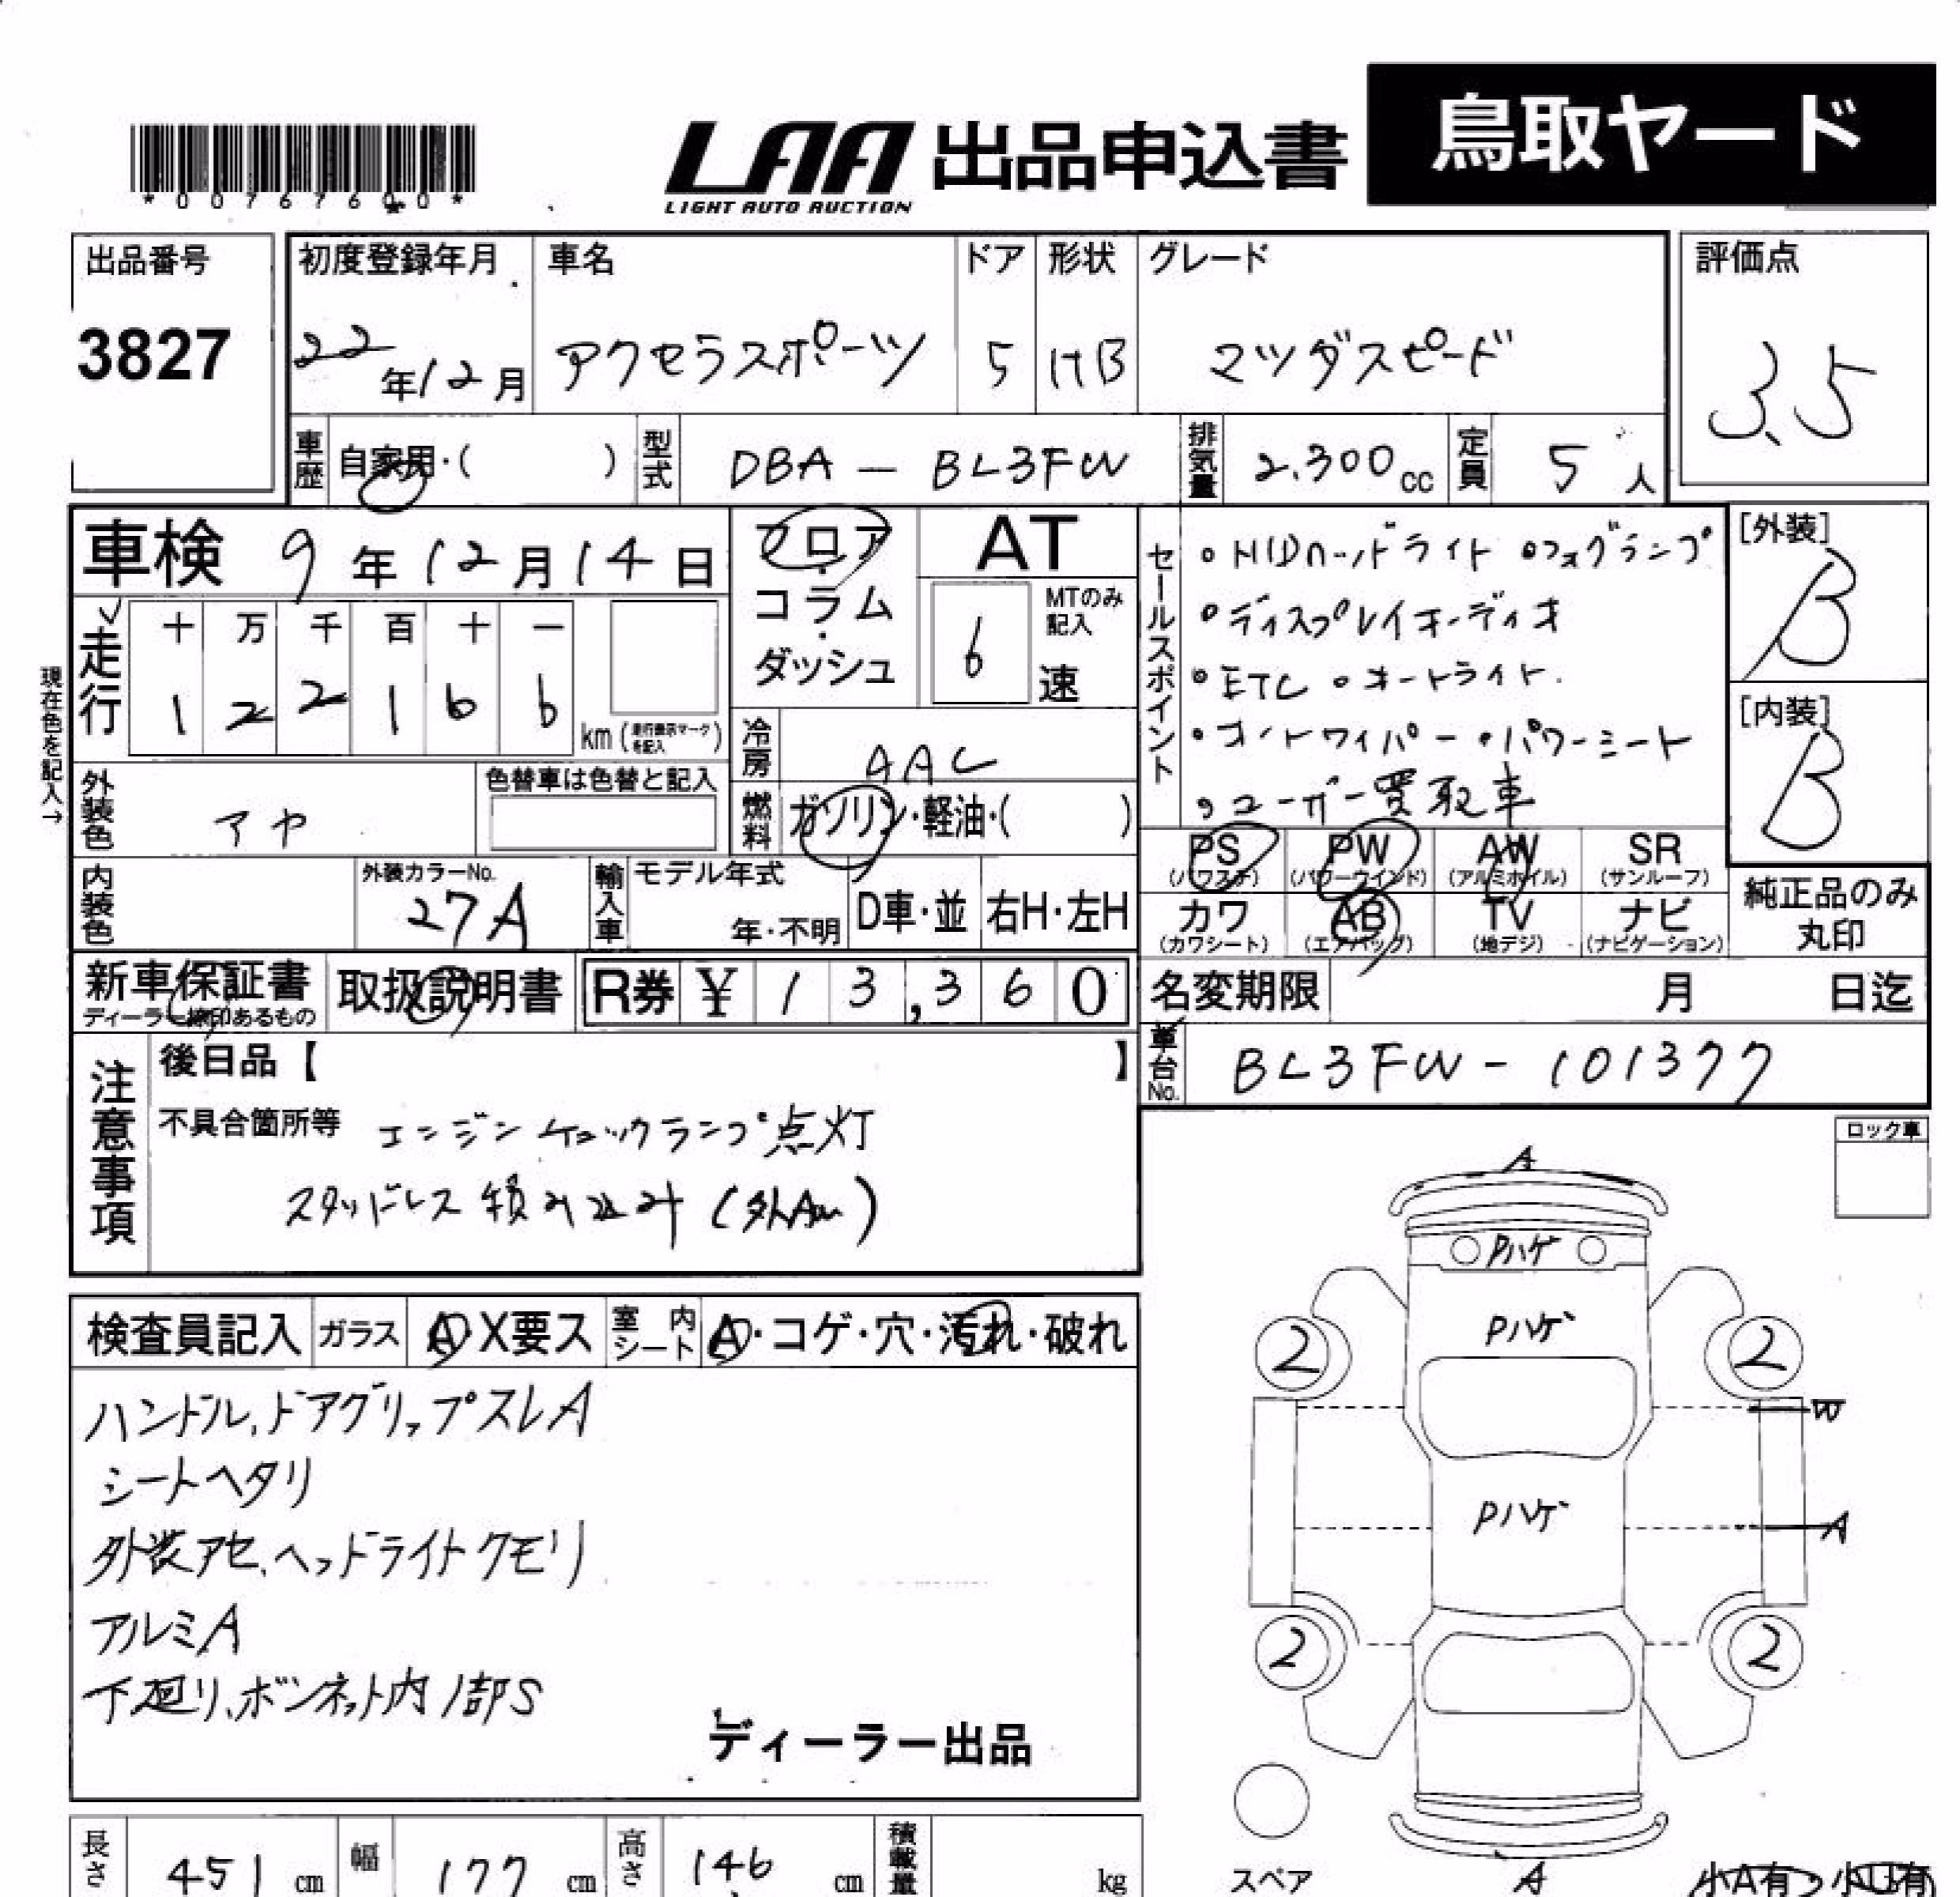 *00767600*
LAA 出品申込書 鳥取ヤード
LIGHT AUTO AUCTION
出品番号 初度登録年月 車名 ドア 形状 グレード 評価点
3827 22年12月 アクセラスポーツ 5 HB マツダスピード 3.5
車歴 自家用・( ) 型式 DBA — BL3FW 排気量 2.300cc 定員 5人
車検 9年12月14日
フロア・コラム・ダッシュ
AT
6
MTのみ記入
速
セールスポイント
。HIDヘッドライト 。フォグランプ
。ディスプレイオーディオ
。ETC 。オートライト.
。オートワイパー 。パワーシート
。ユーザー買取車
[外装]
B
[内装]
B
現在色を記入→
走行 十 万 千 百 十 一
1 2 2 1 6 6 km (走行表示マークを記入)
冷房 AAC
外装色 アヤ
色替車は色替と記入
燃料 ガソリン・軽油・( )
PS (パワステ) PW (パワーウインド) AW (アルミホイル) SR (サンルーフ)
カワ (カワシート) AB (エアバッグ) TV (地デジ) ナビ (ナビゲーション)
純正品のみ丸印
内装色 外装カラーNo. 27A 輸入車 モデル年式 年・不明 D車・並 右H・左H
新車保証書 取扱説明書 R券 ¥ 13,360
名変期限 月 日迄
車台No. BL3FW - 101377
注意事項
後日品【 】
不具合箇所等 エンジンチェックランプ点灯
スタッドレス積み込み
ロック車
A
Pハゲ
Pハゲ
2 2
W
Pハゲ
A
2 2
スペア
A
小A有・小
検査員記入 ガラス A・X要ス 室内シート A・コゲ・穴・汚れ・破れ
ハンドル,ドアグリップスレA
シートヘタリ
外装アセ、ヘッドライトクモリ
アルミA
下廻り、ボンネット内1部S
ディーラー出品
長さ 451cm 幅 177cm 高さ 146cm 積載量 kg